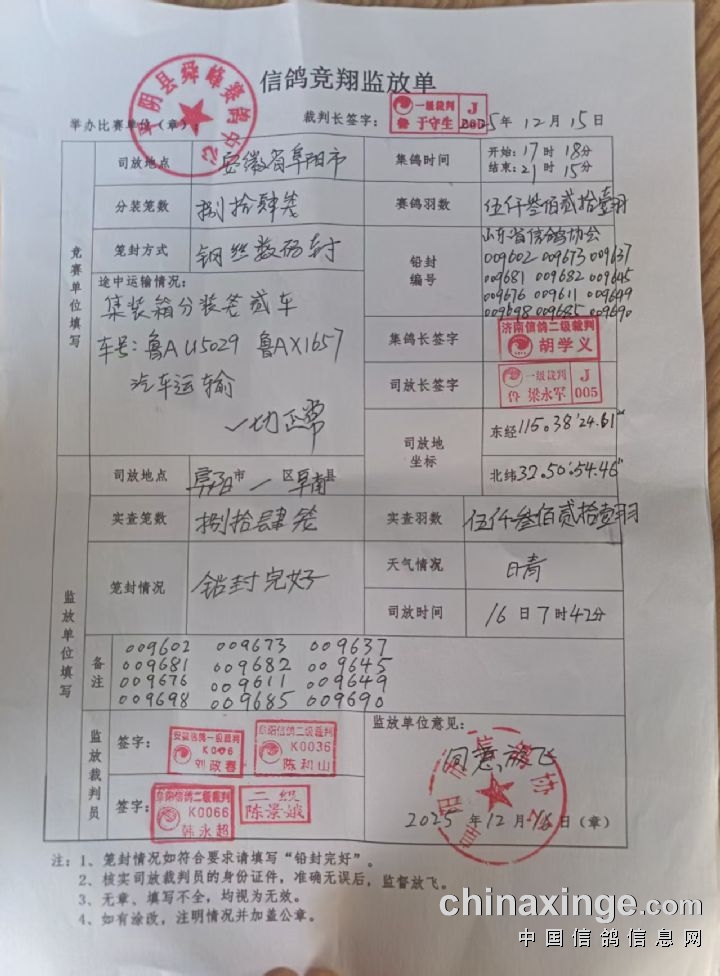 信鸽竞翔监放单
阴县舜峰赛鸽中心
举办比赛单位（章）
裁判长签字：
一级裁判 J
鲁 于守生 005
2025年12月15日
竞赛单位填写
司放地点 安徽省阜阳市
集鸽时间 开始：17时18分
结束：21时15分
分装笼数 捌拾肆笼
赛鸽羽数 伍仟叁佰贰拾壹羽
笼封方式 钢丝数码封
铅封编号 山东省信鸽协会
009602 009673 009637
009681 009682 009645
009676 009611 009649
009698 009685 009690
途中运输情况：
集装箱分装笼贰车
车号：鲁AU5029 鲁AX1657
汽车运输
一切正常
集鸽长签字 济南信鸽二级裁判
胡学义
司放长签字 一级裁判 J
鲁 梁永军 005
司放地坐标 东经115.38'24.61"
北纬32.50'54.46"
监放单位填写
司放地点 阜阳市 一 区阜南县
实查笼数 捌拾肆笼
实查羽数 伍仟叁佰贰拾壹羽
笼封情况 铅封完好
天气情况 晴
司放时间 16日7时42分
备注
009602 009673 009637
009681 009682 009645
009676 009611 009649
009698 009685 009690
监放裁判员
签字：
安徽信鸽一级裁判
K006
刘政春
阜阳信鸽二级裁判
K0036
陈和山
签字：
阜阳信鸽二级裁判
K0066
韩永超
二级
陈景娥
监放单位意见：
同意放飞
2025年12月16日（章）
注：1、笼封情况如符合要求请填写“铅封完好”。
2、核实司放裁判员的身份证件，准确无误后，监督放飞。
3、无章、填写不全，均视为无效。
4、如有涂改，注明情况并加盖公章。
chinaxinge.com
中国信鸽信息网